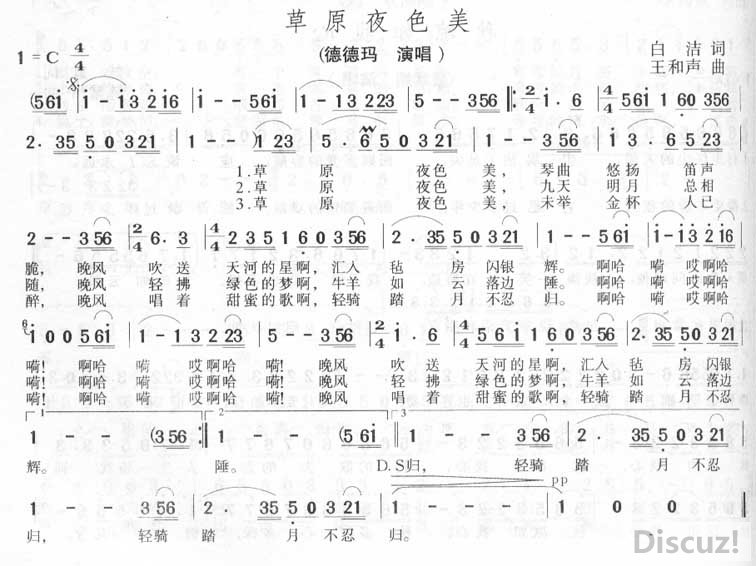 草原夜色美
(德德玛 演唱)
1=C 4/4
白洁 词
王和声 曲
(561 | 1 - 13 2 16 | 1 - - 561 | 1 - 13 223 | 5 - - 356 |: 2/4 1 · 6 | 4/4 561 1 60 356 |
2 · 35 50 321 | 1 - - 123 | 5 · 6 50 321 | 1 - - 356 | 1 3 · 6 523 |
1.草 原 夜色 美, 琴曲 悠扬 笛声
2.草 原 夜色 美, 九天 明月 总相
3.草 原 夜色 美, 未举 金杯 人已
2 - - 356 | 2/4 6 · 3 | 4/4 2351 60 356 | 2 · 35 50 321 | 1 - - 561 | 1 - 21 216 |
脆, 晚风 吹送 天河的星啊,汇入 毡 房 闪银 辉。 啊哈 嗬 哎啊哈
随, 晚风 轻拂 绿色的梦啊,牛羊 如 云 落边 陲。 啊哈 嗬 哎啊哈
醉, 晚风 唱着 甜蜜的歌啊,轻骑 踏 月 不忍 归。 啊哈 嗬 哎啊哈
6 1 00 561 | 1 - 13 223 | 5 - - 356 | 2/4 1 · 6 | 4/4 5616 60 356 | 2 · 35 50 321 |
嗬! 啊哈 嗬 哎啊哈 嗬! 晚风 吹送 天河的星啊,汇入 毡 房 闪银
嗬! 啊哈 嗬 哎啊哈 嗬! 晚风 轻拂 绿色的梦啊,牛羊 如 云 落边
嗬! 啊哈 嗬 哎啊哈 嗬! 晚风 唱着 甜蜜的歌啊,轻骑 踏 月 不忍
1 2 3
1 - - (356 :| 1 - - (561 | 1 - - 356 | 2 · 35 50 321 |
辉。 陲。 D.S归, 轻骑 踏 月 不忍
pp
1 - - 356 | 2 · 35 50 321 | 1 - - - | 1 0 0 ‖
归, 轻骑 踏 月 不忍 归。
Discuz!